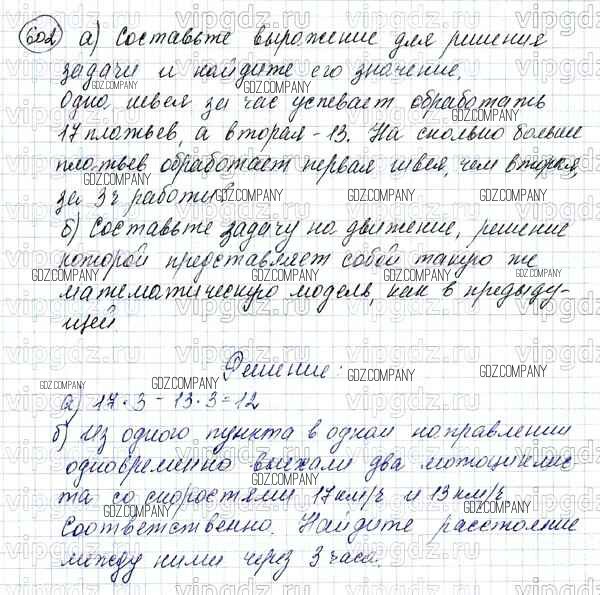 602 а) Составьте выражение для решения
задачи и найдите его значение.
Одна швея за час успевает обработать
17 платьев, а вторая - 13. На сколько больше
платьев обработает первая швея, чем вторая,
за 3ч работы
б) Составьте задачу на движение, решение
которой представляет собой такую же
математическую модель, как в предыду-
щей
Решение:
а) 17·3 - 13·3 = 12
б) Из одного пункта в одном направлении
одновременно выехали два мотоциклис-
та со скоростями 17км/ч и 13 км/ч
соответственно. Найдите расстояние
между ними через 3 часа.